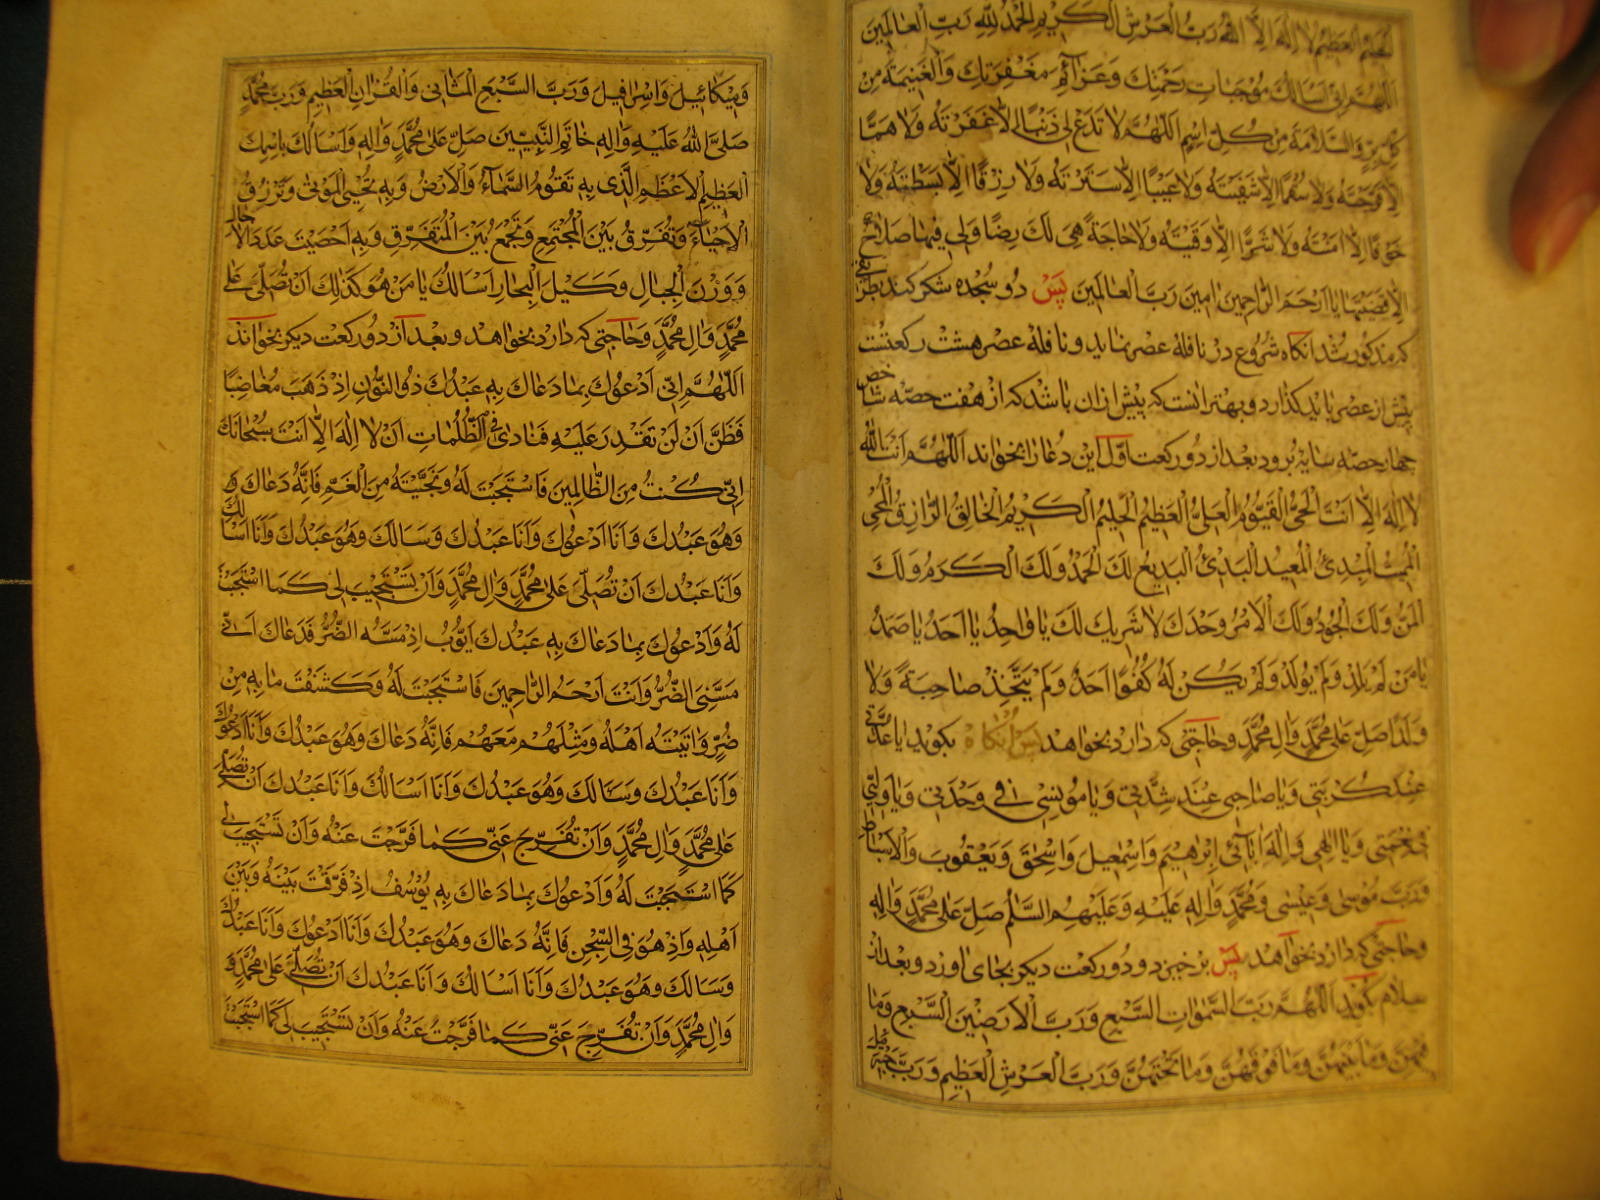 الحليم العظيم لا اله الا الله رب العرش الكريم الحمد لله رب العالمين
اللهم انى اسالك موجبات رحمتك وعزائم مغفرتك والغنيمة من
كل بر والسلامة من كل اسم اللهم لا تدع لى ذنبا الا غفرته ولا هما
الا فرجته ولا سقما الا شفيته ولا عيبا الا سترته ولا رزقا الا بسطته ولا
خوفا الا امنته ولا شرا الا وقيته ولا حاجة هى لك رضا ولى فيها صلاح
الا قضيتها يا ارحم الراحمين امين رب العالمين پس دو سجده شكر كند بطريقى
كه مذكور شد انكاه شروع در نافله عصر نمايد و نافله عصر هشت ركعتست
پيش از عصر بايد كذارد و بهتر انست كه پيش ازان باشد كه از هفت حصه شاخص
چهار حصه سايه برود بعد از دو ركعت اول اين دعا را بخواند اللهم انت الله
لا اله الا انت الحى القيوم العلى العظيم الحليم الكريم الخالق الرازق المحيى
المميت المبدئ المعيد البدئ البديع لك الحمد ولك الكرم ولك
المن ولك الجود ولك الامر وحدك لا شريك لك يا واحد يا احد يا صمد
يا من لم يلد ولم يولد ولم يكن له كفوا احد ولم يتخذ صاحبة ولا
ولدا صل على محمد وال محمد وحاجتى كه دارد بخواهد پس انكاه بكويد يا عدتى
عند كربتى ويا صاحبى عند شدتى ويا مونسى فى وحدتى ويا وليى
فى نعمتى ويا الهى واله ابائى ابرهيم واسمعيل واسحق ويعقوب والاسباط
ورب موسى وعيسى ومحمد واله عليه وعليهم السلم صل على محمد واله
وحاجتى كه دارد بخواهد پس برخيزد و دو ركعت ديكر بجاى اورد و بعد از
سلام بكويد اللهم رب السموات السبع ورب الارضين السبع وما
فيهن وما بينهن وما فوقهن وما تحتهن ورب العرش العظيم ورب جبرئيل
وميكائيل واسرافيل ورب السبع المثانى والقران العظيم ورب محمد
صلى الله عليه واله خاتم النبيين صل على محمد واله واسالك باسمك
العظيم الاعظم الذى به تقوم السماء والارض وبه تحيى الموتى وترزق
الاحياء وتفرق بين المجتمع وتجمع بين المتفرق وبه احصيت عدد الاجال
ووزن الجبال وكيل البحار اسالك يا من هو كذلك ان تصلى على
محمد وال محمد وحاجتى كه دارد بخواهد و بعد از دو ركعت ديكر بخواند
اللهم انى ادعوك بما دعاك به عبدك ذو النون اذ ذهب مغاضبا
فظن ان لن تقدر عليه فنادى فى الظلمات ان لا اله الا انت سبحانك
انى كنت من الظالمين فاستجبت له ونجيته من الغم فانه دعاك
وهو عبدك وانا ادعوك وانا عبدك وسالك وهو عبدك وانا اسالك
وانا عبدك ان تصلى على محمد وال محمد وان تستجيب لى كما استجبت
له وادعوك بما دعاك به عبدك ايوب اذ مسه الضر فدعاك انى
مسنى الضر وانت ارحم الراحمين فاستجبت له وكشفت ما به من
ضر واتيته اهله ومثلهم معهم فانه دعاك وهو عبدك وانا ادعوك
وانا عبدك وسالك وهو عبدك وانا اسالك وانا عبدك ان تصلى
على محمد وال محمد وان تفرج عنى كما فرجت عنه وان تستجيب لى
كما استجبت له وادعوك بما دعاك به يوسف اذ فرقت بينه وبين
اهله واذ هو فى السجن فانه دعاك وهو عبدك وانا ادعوك وانا عبدك
وسالك وهو عبدك وانا اسالك وانا عبدك ان تصلى على محمد
وال محمد وان تفرج عنى كما فرجت عنه وان تستجيب لى كما استجبت